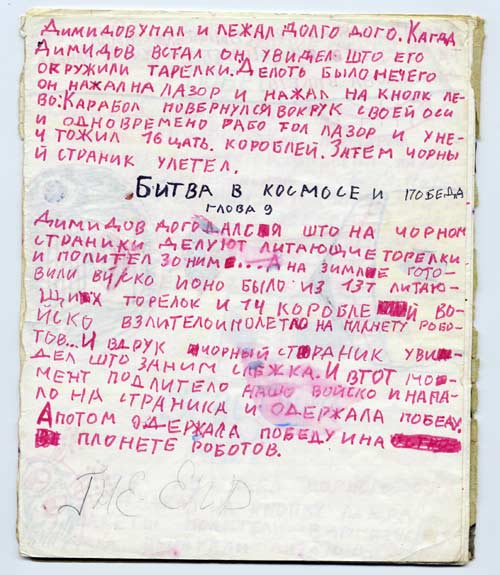 ДИМИДОВ УПАЛ И ЛЕЖАЛ ДОЛГО ДОГО. КАГДА
ДИМИДОВ ВСТАЛ ОН УВИДЕЛ ШТО ЕГО
ОКРУЖИЛИ ТАРЕЛКИ. ДЕЛОТЬ БЫЛО НЕЧЕГО
ОН НАЖАЛ НА ЛАЗОР И НАЖАЛ НА КНОПК ЛЕ-
ВО. КАРАБОЛ ПОВЕРНУЛСЯ ВОКРУК СВОЕЙ ОСИ
И ОДНОВРЕМЕНО РАБОТОЛ ЛАЗОР И УНЕ-
ЧТОЖИЛ 16 ЦАТЬ. КОРОБЛЕЙ. ЗАТЕМ ЧОРНЫ
Й СТРАНИК УЛЕТЕЛ.
БИТВА В КОСМОСЕ И ПОБЕДА
ГЛОВА 9
ДИМИДОВ ДОГОДАЛСЯ ШТО НА ЧОРНОМ
СТРАНИКИ ДЕЛУЮТ ЛИТАЮЩИЕ ТОРЕЛКИ
И ПОЛИТЕЛ ЗО НИМ... А НА ЗИМЛЕ ГОТО-
ВИЛИ ВИСКО ИОНО БЫЛО ИЗ 13Т ЛИТАЮ-
ЩИХ ТОРЕЛОК И 14 КОРОБЛЕЙ ВО-
ЙСКО ВЗЛИТЕЛО И ПОЛЕТЛО НА ПЛАНЕТУ РОБО-
ТОВ... И ВДРУК ЧОРНЫЙ СТРАНИК УВИ-
ДЕЛ ШТО ЗАНИМ СЛЕЖКА. И ВТОТ МО-
МЕНТ ПОДЛИТЕЛО НАШО ВОЙСКО И НАПА-
ЛО НА СТРАНИКА И ОДЕРЖАЛА ПОБЕДУ.
А ПОТОМ ОДЕРЖАЛА ПОБЕДУ И НА
ПЛОНЕТЕ РОБОТОВ.
THE END